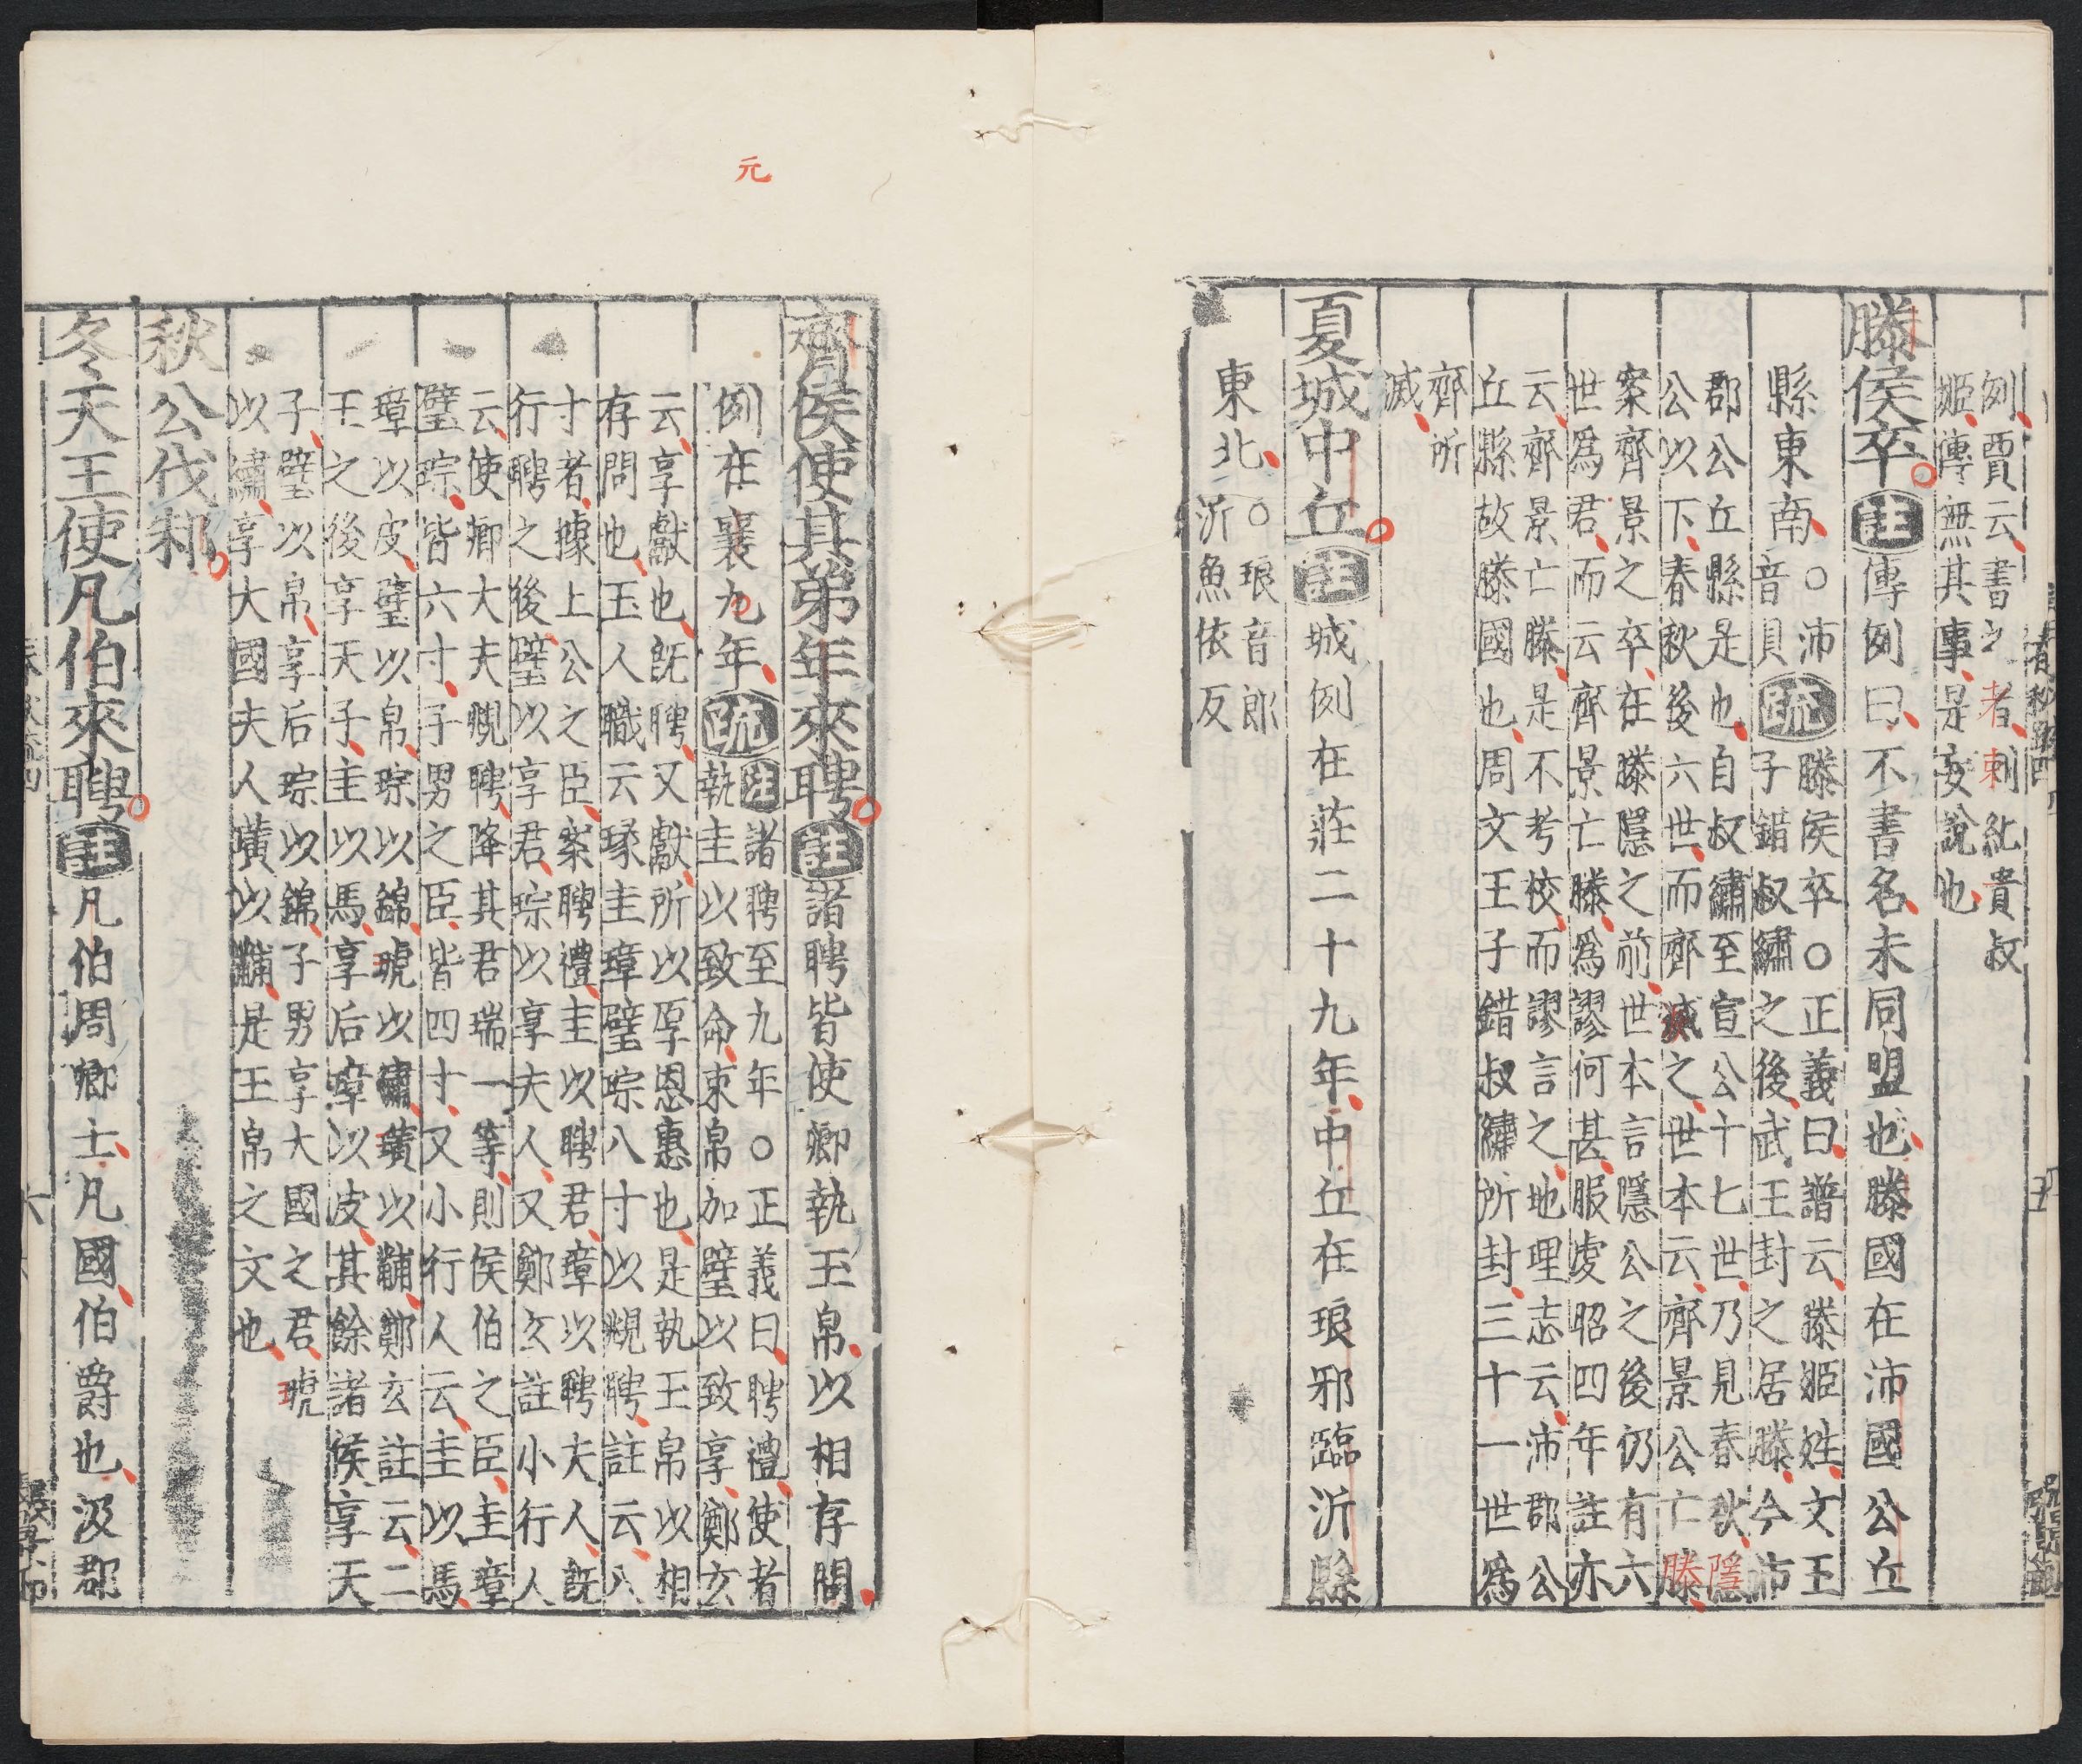 例賈云書之者刺紀貴叔
姬傳無其事是妄說也
滕侯卒註傳例曰不書名未同盟也滕國在沛國公丘
縣東南○沛
音貝疏滕侯卒○正義曰譜云滕姬姓文王
子錯叔繡之後武王封之居滕今沛
郡公丘縣是也自叔繡至宣公十七世乃見春秋隱
公以下春秋後六世而齊滅之世本云齊景公亡滕
案齊景之卒在滕隱之前世本言隱公之後仍有六
世爲君而云齊景亡滕爲謬何甚服虔昭四年註亦
云齊景亡滕是不考校而謬言之地理志云沛郡公
丘縣故滕國也周文王子錯叔繡所封三十一世爲
齊所
滅
夏城中丘註城例在莊二十九年中丘在琅邪臨沂縣
東北○琅音郎
沂魚依反
齊侯使其弟年來聘註諸聘皆使卿執玉帛以相存問
例在襄九年疏註諸聘至九年○正義曰聘禮使者
執圭以致命束帛加璧以致享鄭玄
云享獻也旣聘又獻所以厚恩惠也是執玉帛以相
存問也玉人職云瑑圭璋璧琮八寸以覜聘註云八
寸者據上公之臣案聘禮圭以聘君璋以聘夫人旣
行聘之後璧以享君琮以享夫人又鄭玄註小行人
云使卿大夫覜聘降其君瑞一等則侯伯之臣圭璋
璧琮皆六寸子男之臣皆四寸又小行人云圭以馬
璋以皮璧以帛琮以錦琥以繡璜以黼鄭玄註云二
王之後享天子圭以馬享后璋以皮其餘諸侯享天
子璧以帛享后琮以錦子男享大國之君琥
以繡享大國夫人璜以黼是玉帛之文也
秋公伐邾
冬天王使凡伯來聘註凡伯周卿士凡國伯爵也汲郡
元
春秋疏四
五
六